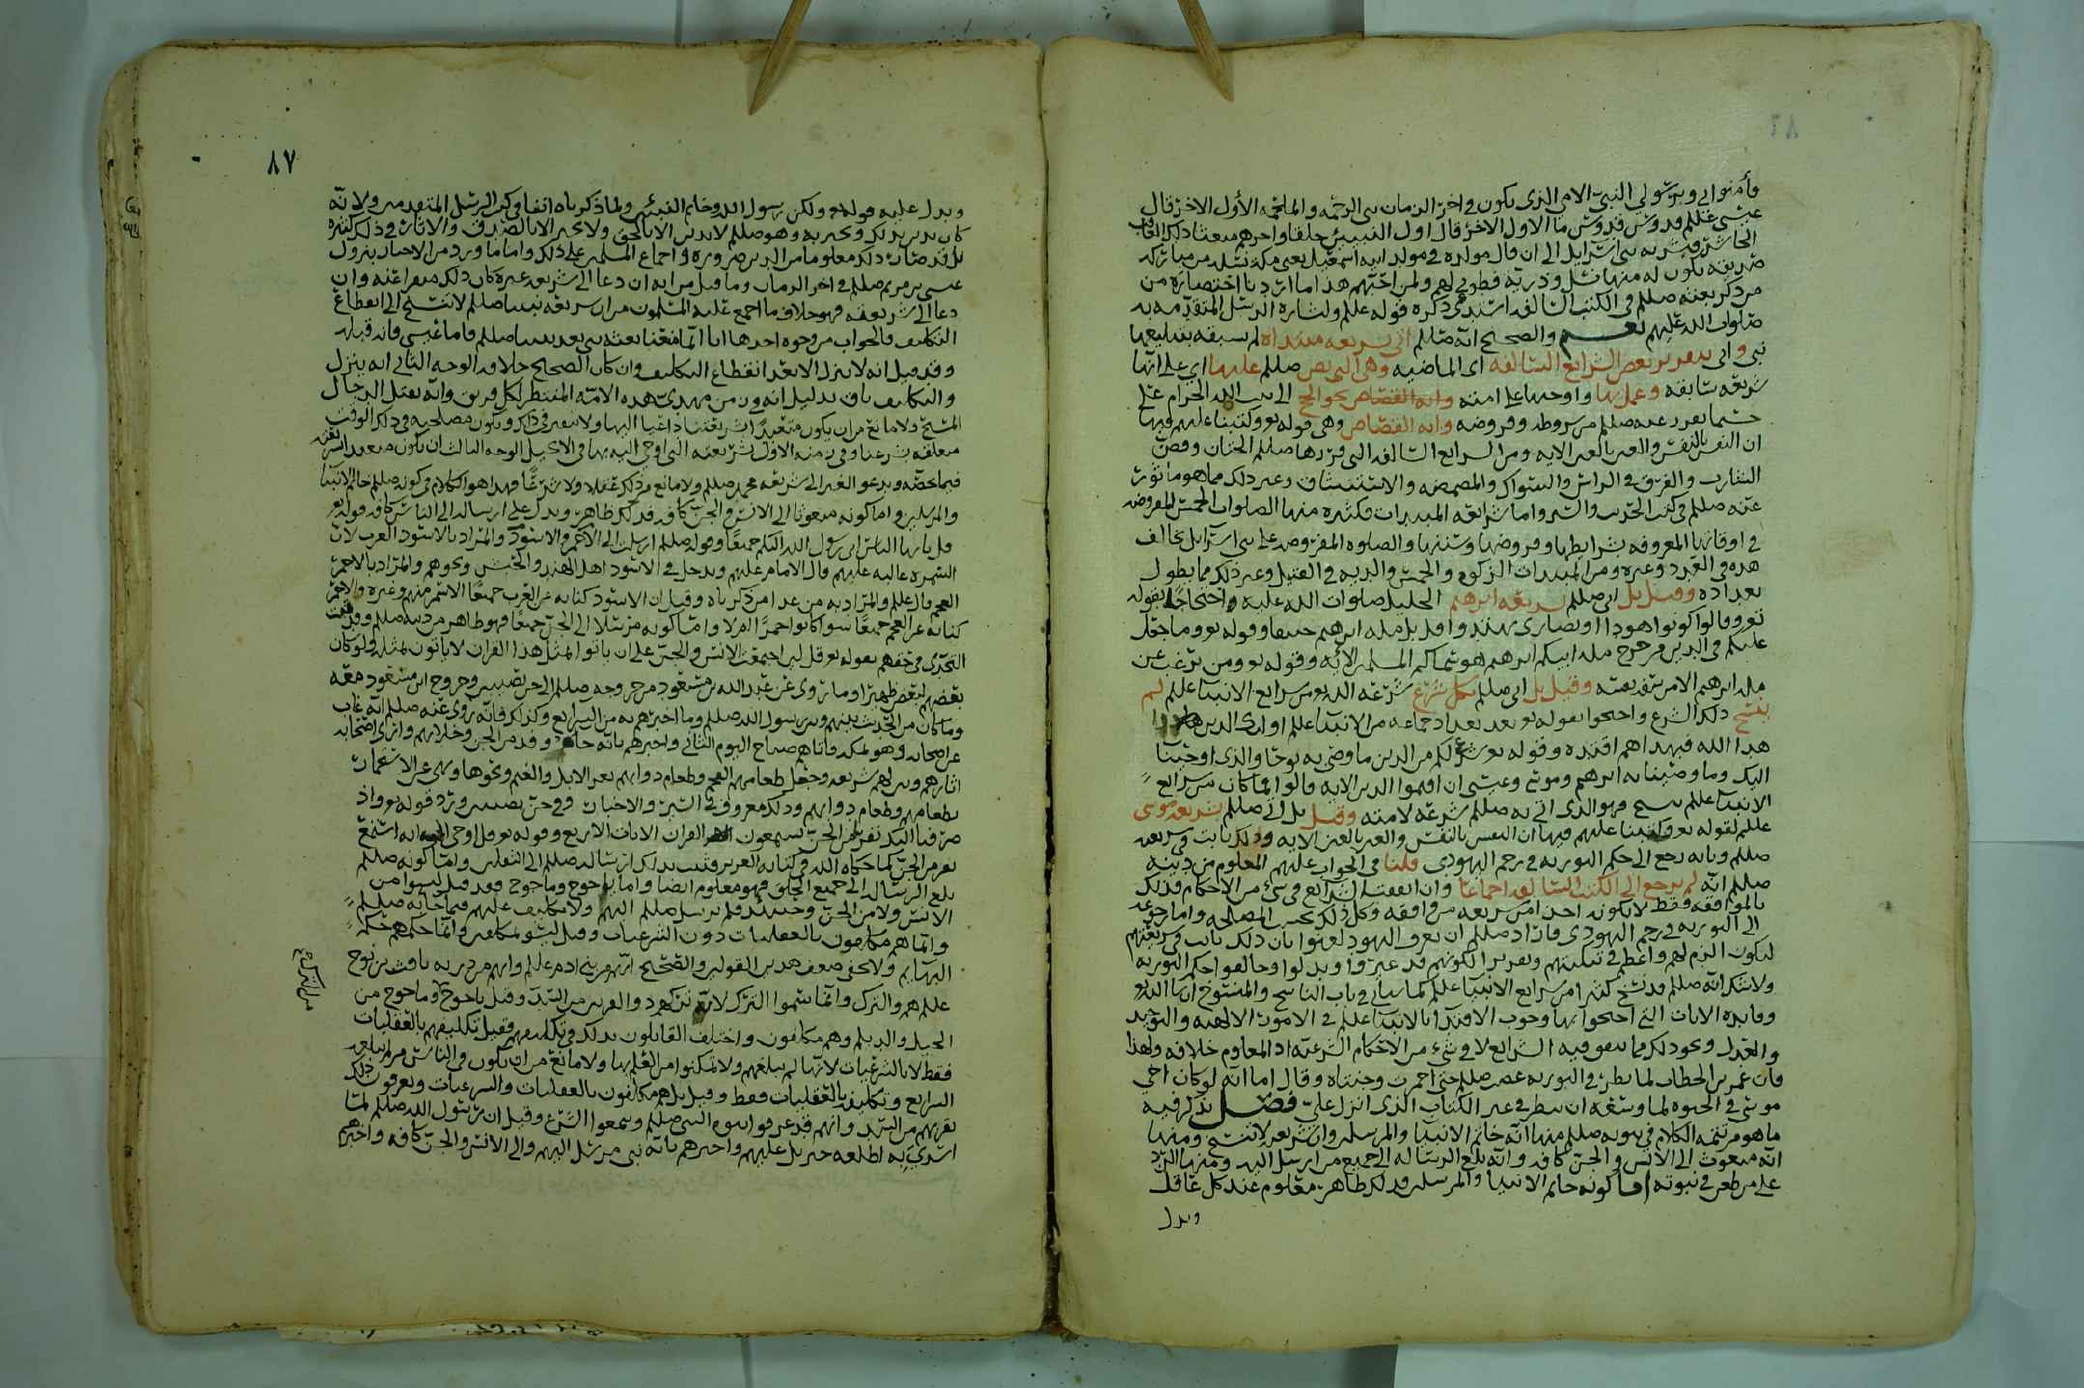 فأمنوا بي وبرسولي النبي الامي الذي يكون في اخر الزمان نبي الرحمه والملحمه الأول الاخر قال
عيسى علم قدوس قدوس ما الاول الاخر قال اول النبيين خلقا واخرهم مبعثا ذلك العاقب
الحاشر فبشر به بني اسرايل الى ان قال مولده في مولد ابيه اسمعيل يعني مكه
صديقه يكون له منها نسل وذريه فطوبى لهم ولمن احبهم هذا ما اردنا اختصاره من
من ذكر بعثته صللم في الكتب السالفه ذكره قوله علم وبشاره الرسل المتقدمه به
صلوات الله عليهم نعم والصحيح انه صللم اتى بشريعه مبتداه لم يسبقه بتبليغها
نبي واتى بتقرير بعض الشرايع السالفه اى الماضيه وهي التي نص صللم عليها اي على انها
شريعه سابقه وعمل بها واوجبها على امته وانه القصاص نحو الحج الى بيت الله الحرام على
حسبما تقرر عنه صللم من شروطه وفروضه وانه القصاص وهي قوله تع وكتبنا عليهم فيها
ان النفس بالنفس والعين بالعين الايه ومن الشرايع السالفه التي قررها صللم الختان وقص
الشارب والفرق في الراس والسواك والمضمضه والاستنشاق وغير ذلك مما هو ماثور
عنه صللم في كتب الحديث والسير واما شرائعه المبتدات فكثيره منها الصلوات الخمس المفروضه
في اوقاتها المعروفه بشرايطها وفروضها وسننها والصلوه المفروضه على بني اسرآيل تخالف
هذه في العدد وغيره ومن المبتدات الزكوه والخمس والديه في القتيل وغير ذلك مما يطول
تعداده وقيل بل اتى صللم بشريعه ابرهيم الخليل صلوات الله عليه واحتجاجا بقوله
تع وقالوا كونوا هودا او نصارى تهتدوا قل بل مله ابرهيم حنيفا وقوله تع وما جعل
عليكم في الدين من حرج مله ابيكم ابرهيم هو سماكم المسلمين الايه وقوله تع ومن يرغب عن
مله ابرهيم الا من سفه نفسه وقيل بل اتى صللم بكل شرع شرعه الله تع من شرايع الانبيا علم لم
ينسخ ذلك الشرع واحتجوا بقوله تع بعد تعداد جماعه من الانبيا علم اولئك الذين
هدا الله فبهداهم اقتده وقوله تع شرع لكم من الدين ما وصى به نوحا والذي اوحينا
اليك وما وصينا به ابرهيم وموسى وعيسى ان اقيموا الدين الايه قالوا فما كان من شرايع
الانبيا علم لم ينسخ فهو الذي اتى به صللم شرعه لامته وقيل بل اتى صللم بشريعه موسى
علم لقوله تع وكتبنا عليهم فيها ان النفس بالنفس والعين بالعين الايه وذلك ثابت في شريعه
صللم وبانه رجع الى حكم التوريه في رجم اليهودي قلنا في الجواب عليهم المعلوم من دينه
صللم انه لم يرجع الى الكتب السالفه اجماعا وان اتفقت الشرائع في شي من الاحكام فذلك
بالموافقه فقط لا بكونه اخذا من شريعه من وافقه وكل ذلك بحسب المصالح واما رجوعه
الى التوريه في رجم اليهودي فاراد صللم ان يعرف اليهود لعنوا بان ذلك ثابت في شريعتهم
ليكون الزم لهم واعظم في تبكيتهم وتقريرا لكونهم قد غيروا وبدلوا وخالفوا حكم التوريه
ولا شك انه صللم قد نسخ كثيرا من شرايع الانبيا علم كما سياتي في باب الناسخ والمنسوخ ان شا الله تع
وفايده الايات التي احتجوا بها وجوب الاقتدا بالانبيا علم في الامور الالهيه والتوحيد
والعدل ونحو ذلك مما يتفق فيه الشرايع لا في شي من الاحكام الشرعيه اذ المعلوم خلافه ولهذا
فان عمر بن الخطاب لما نظر في التوريه غضب صللم حتى احمرت وجنتاه وقال اما انه لو كان اخي
موسى في الحيوه لما وسعه ان ينظر في غير الكتاب الذي انزل علي فصل نذكر فيه
ما هو من تتمه الكلام في نبوته صللم منها انه خاتم الانبيا والمرسلين وان شريعته لا تنسخ ومنها
انه مبعوث الى الانس والجن كافه وانه بلغ الرساله الى جميع من ارسل اليه ومنها الرد
على من طعن في نبوته اما كونه خاتم الانبيا والمرسلين فذلك ظاهر معلوم عند كل عاقل
ويدل
٨٧
ويدل عليه قوله تع ولكن رسول الله وخاتم النبيين ولما ذكرناه انفا وكل الرسل المتقدمين ولانه
كان يدين بذلك ويخبر به وهو صللم لا يدين الا بالحق ولا يخبر الا بالصدق والاثار في ذلك كثيره
بل قد صار ذلك معلوما من الدين ضروره واجماع المسلمين على ذلك واما ما ورد من الاخبار بنزول
عيسى بن مريم صللم في اخر الزمان وما قيل من انه ان دعا الى شريعه غيره كان ذلك وان
دعا الى شريعته فهو خلاف ما اجمع عليه المسلمون من ان شريعه نبينا صللم لا تنسخ الى انقطاع
التكليف فالجواب من وجوه احدها انا انما منعنا بعثه نبي بعد نبينا صللم فاما عيسى فانه قبله
وقد قيل انه لا ينزل الا بعد انقطاع التكليف وان كان الصحيح خلافه الوجه الثاني انه ينزل
والتكليف باق بدليل انه في زمن مهدي هذه الامه المنتظر لكل فريق وانه يقتل الدجال
المسيخ فلا مانع من ان يكون متعبدا بشريعتنا داعيا اليها
متعلقه بشرعنا وفي زمنه الاول بشريعته التي اوحي اليه بها في الانجيل الوجه الثالث ان يكون متعبدا بشريعته
فيما يخصه ويدعو الغير الى شريعه محمد صللم ولا مانع من ذلك عقلا ولا شرعا فهذا هو الكلام في كونه صللم خاتم الانبيا
والمرسلين واما كونه مبعوثا الى الانس والجن كافه فذلك ظاهر ويدل على ارساله الى الناس كافه قوله تع
قل يا ايها الناس اني رسول الله اليكم جميعا وقوله صللم ارسلت الى الاحمر والاسود والمراد بالاسود العرب لان
السمره غالبه عليهم قال الامام علم ويدخل في الاسود اهل الهند والحبش ونحوهم والمراد بالاحمر
العجم قال علم والمراد به من عدا من ذكرناه وقيل ان الاسود كنايه عن العرب جميعا الاسمر منهم وغيره والاحمر
كنايه عن العجم جميعا سوا كانوا حمرا ام لا واما كونه مرسلا الى الجن جميعا فهو ظاهر من دينه صللم وقد
التحدي في حقهم بقوله تع قل لين اجتمعت الانس والجن على ان ياتوا بمثل هذا القران لا ياتون بمثله ولو كان
بعضهم لبعض ظهيرا وما روي عن عبد الله بن مسعود من خروجه صللم الى جن نصيبين وخروج ابن مسعود معه
وما كان من الحديث بينهم وبين رسول الله صللم وما اخبرهم به من الشرايع وكذلك فانه روي عنه صللم انه غاب
عن اصحابه وهو بمكه فاتاهم صباح اليوم الثاني واخبرهم بانه جاءه وفد من الجن واراى اصحابه
اثارهم وبين لهم شريعه وجعل طعامهم العظم وطعام دوابهم بعر الابل والغنم ونحوها ونهى عن الاستجمار
بطعامهم وطعام دوابهم وذلك معروف في السير والاخبار وفي جن نصيبين ورد قوله تع واذ
صرفنا اليك نفرا من الجن يستمعون القران الايات الاربع وقوله تع قل اوحي الي انه استمع
نفر من الجن كما حكاه الله في كتابه العزيز فثبت بذلك ارساله صللم الى الثقلين واما كونه صللم
بلغ الرساله الى جميع الخلق فهو معلوم ايضا واما ياجوج وماجوج فقد قيل ليسوا من
الانس ولا من الجن وحينئذ فلم يرسل صللم اليهم ولا تكليف عليهم فيما جا به صللم
وانما هم مكلفون بالعقليات دون الشرعيات وقيل ليسو بمكلفين وانما حكمهم حكم
البهايم ولا يخفى ضعف هذين القولين والصحيح انهم من بني ادم علم وانهم من ذريه يافث بن نوح
علم هم والترك وانما سموا الترك لانه تركهم ذو القرنين من السد وقيل ياجوج وماجوج من
الجيل والديلم وهم مكلفون واختلف القايلون بذلك في تكليفهم فقيل تكليفهم بالعقليات
فقط لا بالشرعيات لانها لم تبلغهم ولا تمكنوا من العلم بها ولا مانع من ان يكون في الناس من لم تبلغه
الشرايع وتكليفه بالعقليات فقط وقيل بل هم مكلفون بالعقليات والشرعيات ويعرفون ذلك
بقربهم من السد وانهم قد عرفوا نبوه النبي صللم وسمعوا الشرع وقيل ان رسول الله صللم لما
اسري به اطلعه جبريل عليهم واخبرهم بانه نبي مرسل اليهم والى الانس والجن كافه واخبرهم